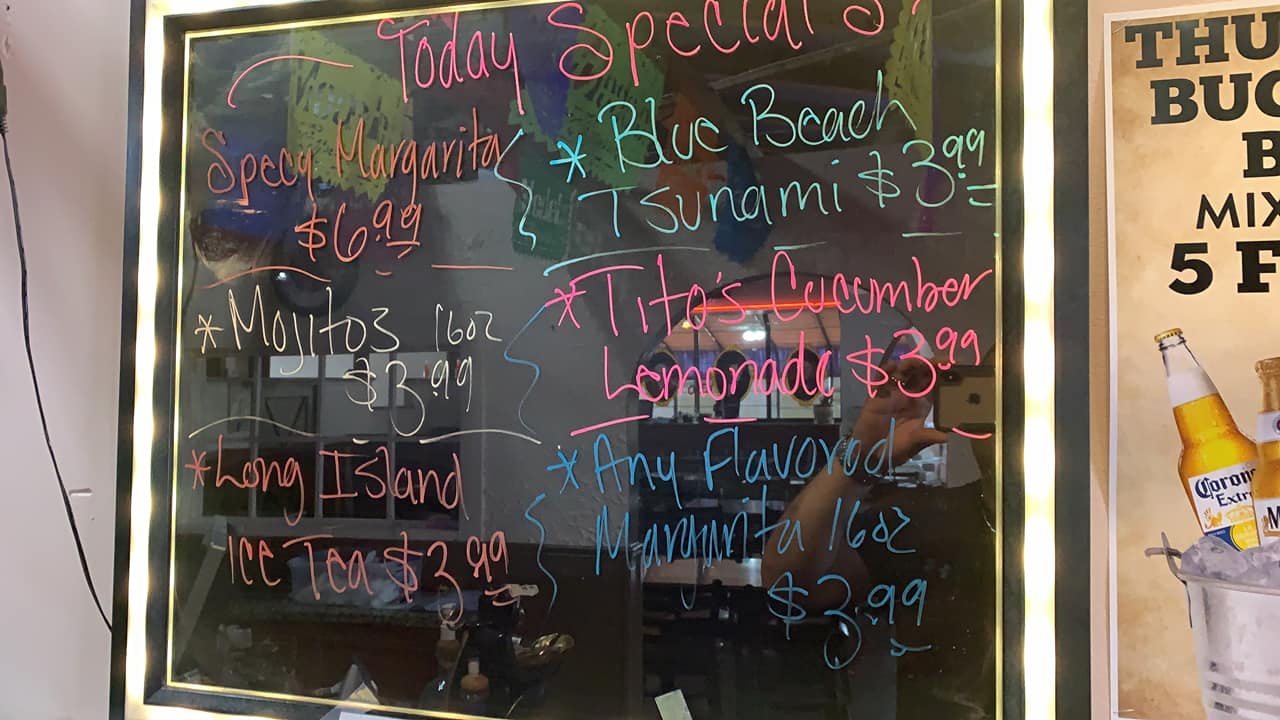 Today Specials
Specy Margarita
$6.99
* Mojitos 16oz
$3.99
* Long Island
Ice Tea $3.99
* Blue Beach
Tsunami $3.99
* Tito's Cucumber
Lemonade $3.99
* Any Flavored
Margarita 16oz
$3.99
THU
BUC
B
MIX
5 F
Corona
Extra
M